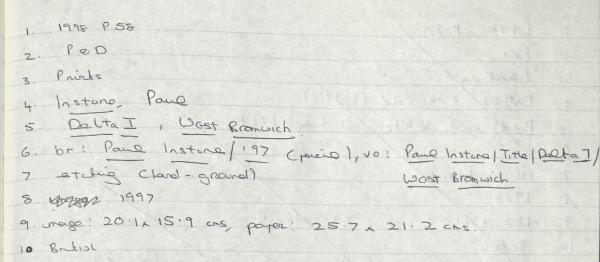 1. 1998 P58
2. P&D
3. Prints
4. Instone, Paul
5. Delta I, West Bromwich
6. br: Paul Instone/'97 (pencil), vo: Paul Instone/Title/Delta I/
7. etching (hard-ground) West Bromwich
8. 1997
9. image: 20.1 x 15.9 cms, paper: 25.7 x 21.2 cms.
10 British